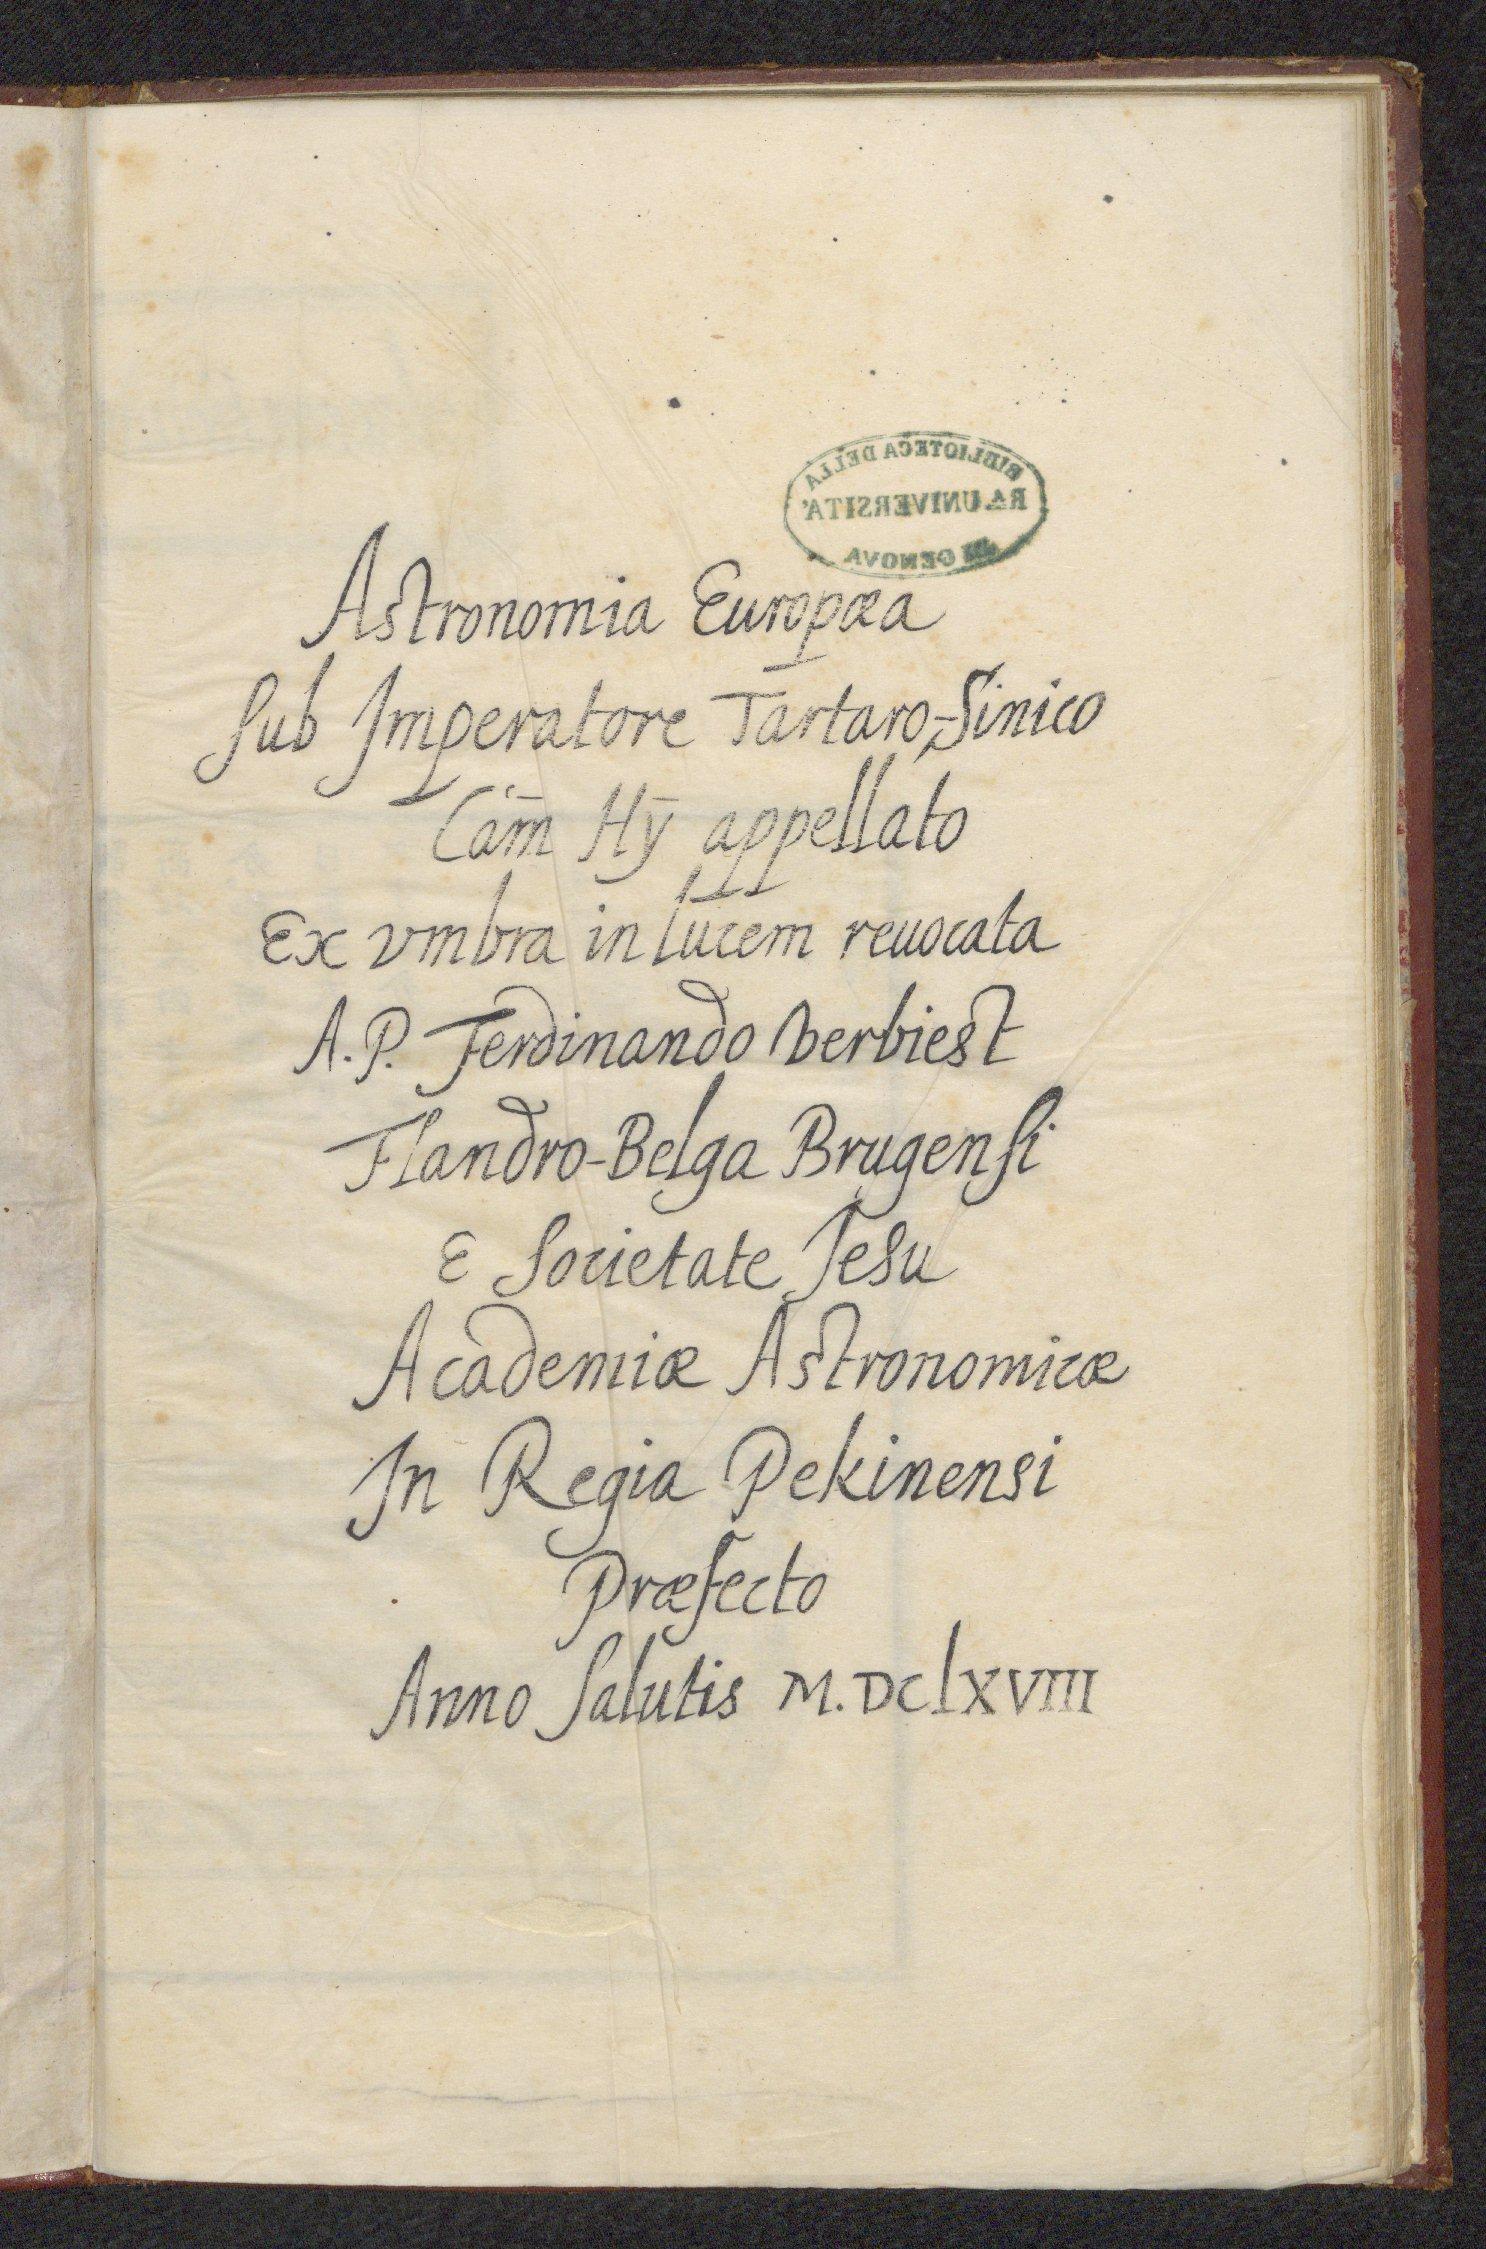 BIBLIOTECA DELLA
RA. UNIVERSITA'
DI GENOVA
Astronomia Europæa
Sub Imperatore Tartaro-Sinico
Cám Hȳ appellato
Ex vmbra in lucem reuocata
A. P. Ferdinando Verbiest
Flandro-Belga Brugensi
E Societate Jesu
Academiæ Astronomicæ
In Regia Pekinensi
Præfecto
Anno Salutis M.DCLXVIII